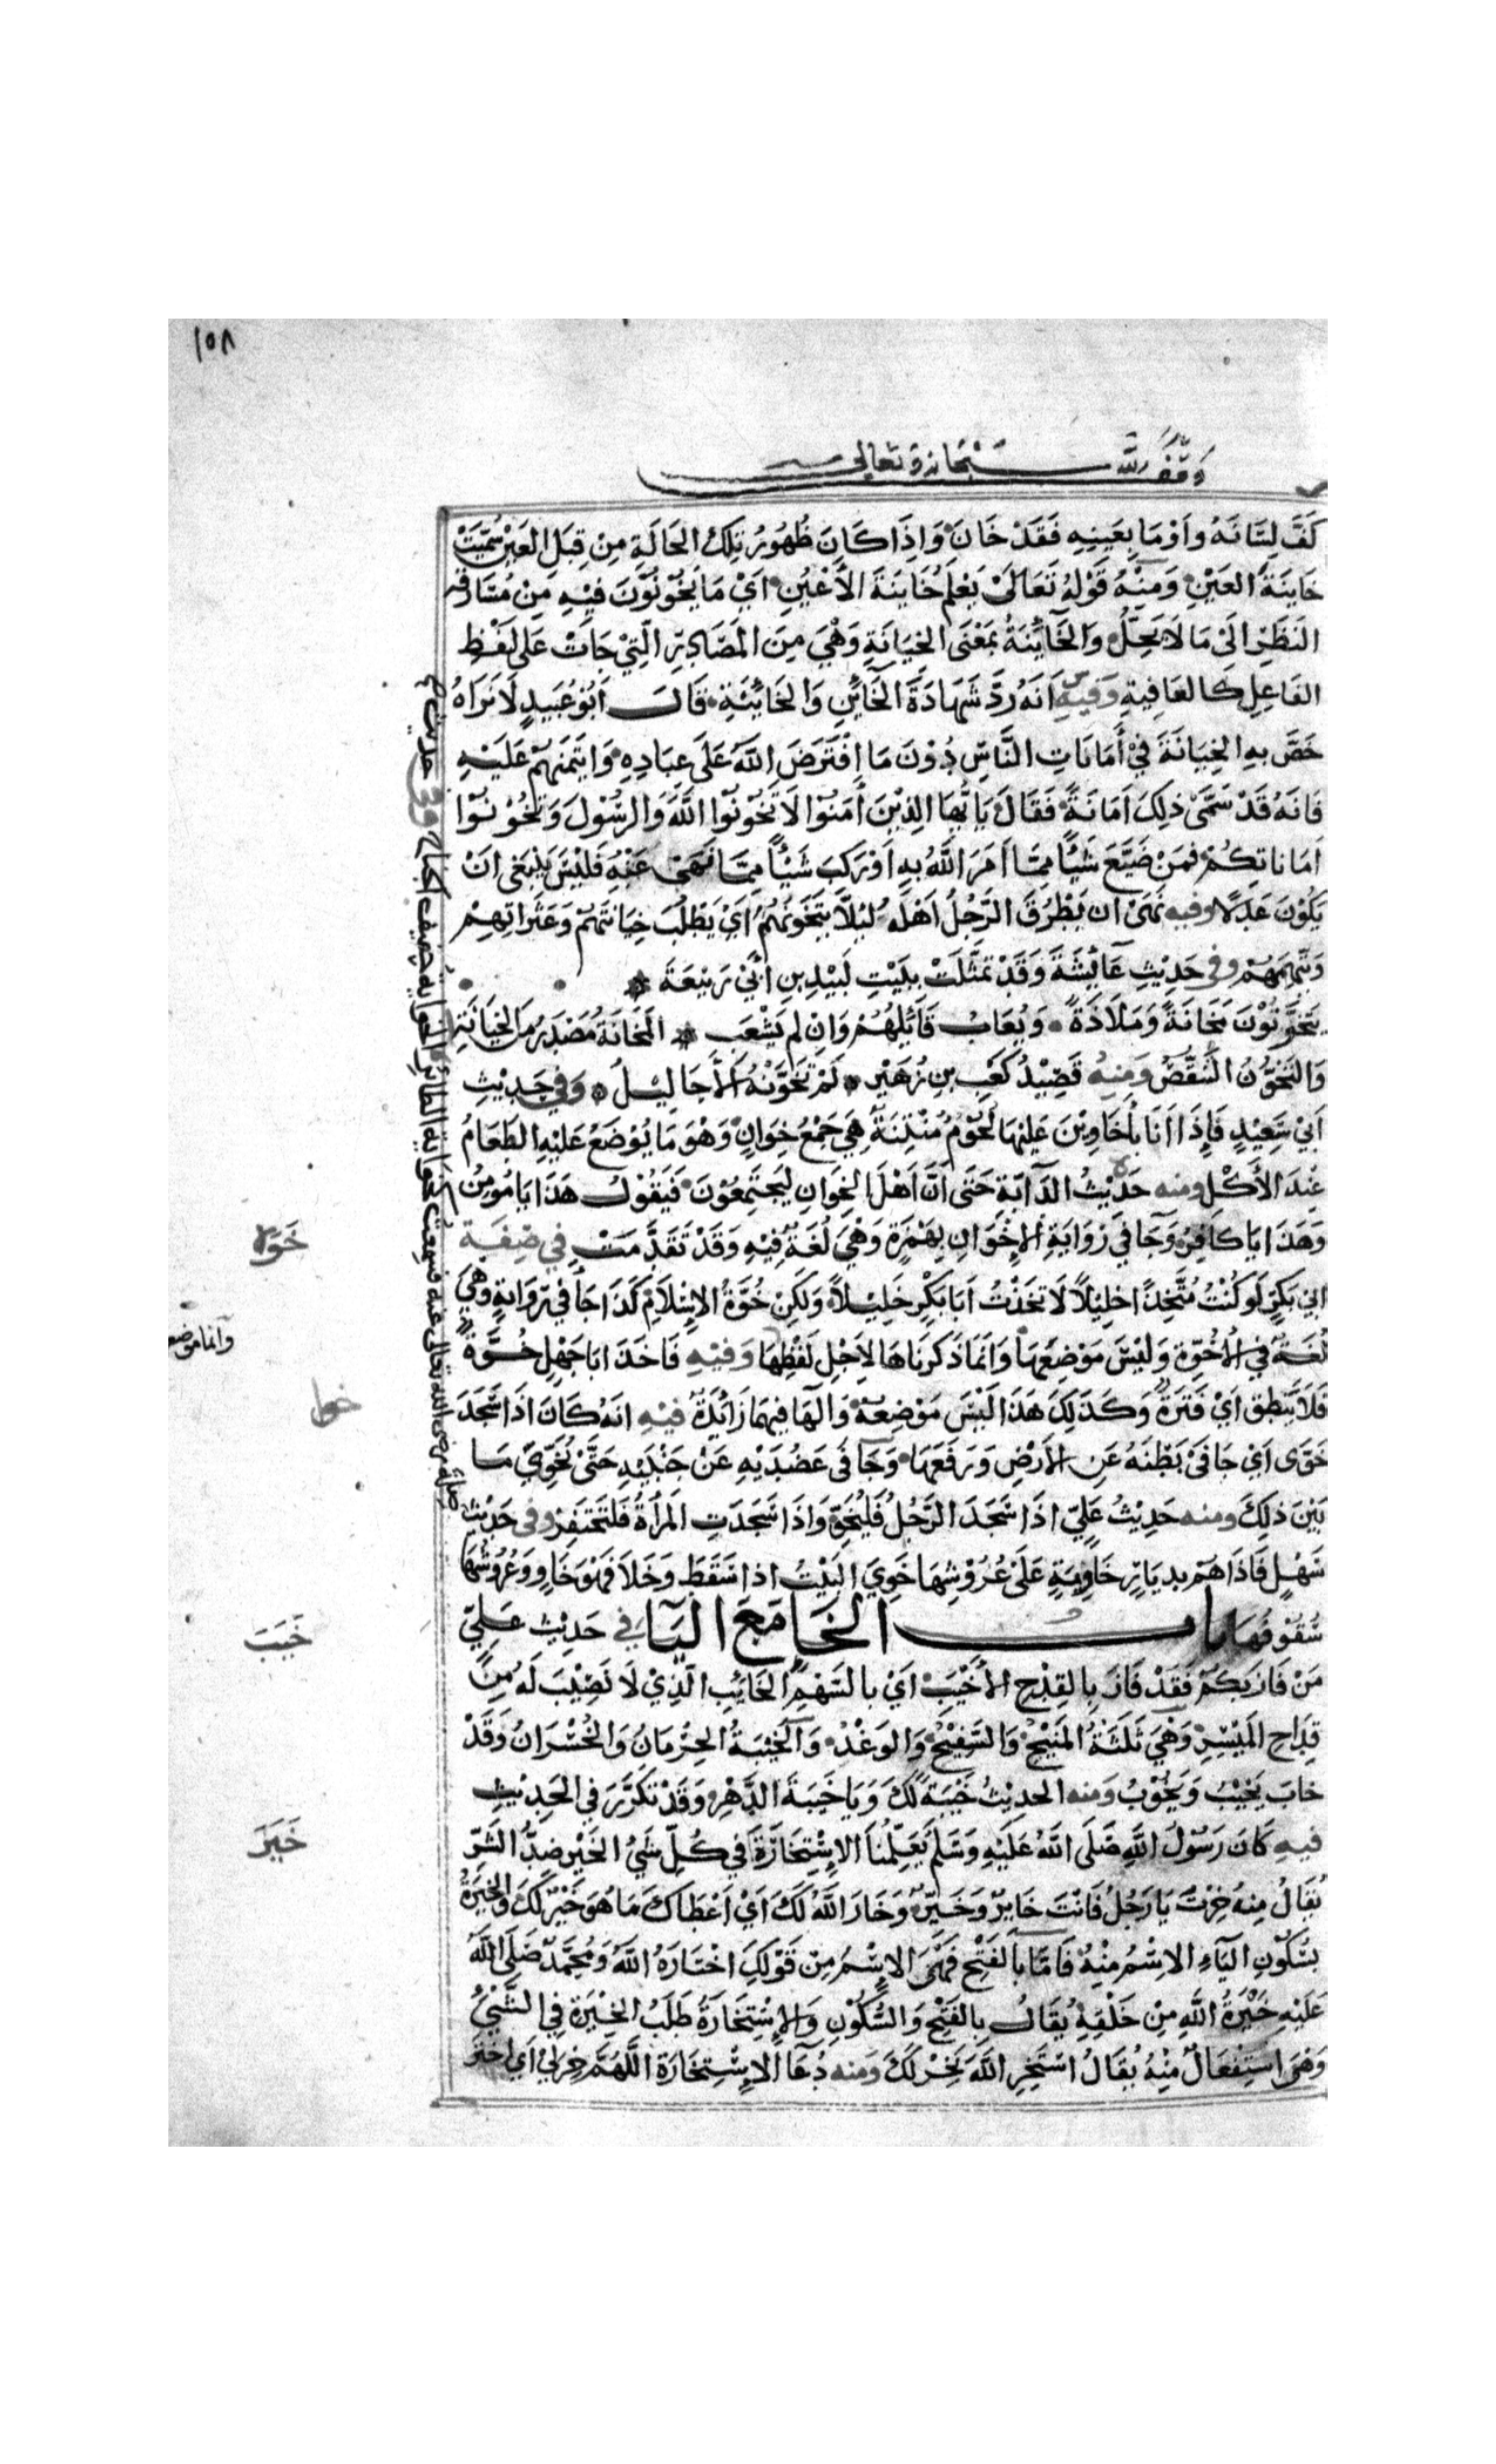 ١٥٨
وقف لله سبحانه وتعالى
كَفَّ لِسَانَهُ وَاَوْمَا بِعَينِهِ فَقَدْ خَانَ وَاِذَا كَانَ ظُهُورُ تِلْكَ الحَالَةِ مِنْ قِبَلِ العَيْنِ سُمِّيَتْ
خَاينَةَ العَيْنِ وَمِنْهُ قَوْلُهُ تَعَالَىْ يَعْلَمُ خَاينَةَ الأَعْيُنِ اَيْ مَا يَخُوْنُوْنَ فِيْهِ مِنْ مُسَارقة
النَظَرِ الَىْ مَا لَا يَحِلُّ وَالخَايِّنَةُ بمَعْنَى الخِيَانَةِ وَهْيَ مِنَ المَصَادِرِ الَّتِيْ جَاتْ عَلَى لَفْظِ
الفَاعِلِ كالعَافِيةِ وَفِيْهِ اَنَهُ رَدَّ شَهَادَةَ الخَايِّنِ وَالخَايِّنَةِ قَالَ اَبُوْ عُبَيدٍ لَا نَرَاهُ
خَصَّ بِهِ الخِيَانَةَ فِيْ أَمَانَاتِ النَّاسِ دُوْنَ مَا اِفْتَرَضَ اللَّهُ عَلَى عِبَادِهِ وَايتَمَنَهُمْ عَلَيْهِ
فَانَهُ قَدْ سَمَّىْ ذلِكَ اَمَانَةً فَقَالَ يَا يُّهَا الذِيْنَ اٰمَنُوْا لَا تَخُوْنُوْا اللَّهَ وَالرَسُوْلَ وَتَخُوْنُوْا
اَمَانَاتِكُمْ فمَنْ ضَيَّعَ شَيْأً مِمَّا اَمَرَ اللَّهُ بِهِ اَوْ رَكِبَ شَيْأً مِمَّا نَهَىْ عَنْهُ فَلَيْسَ يَنْبَغِى اَنْ
يَكُوْنَ عَدْلًا وفيه نَهَىْ ان يَطْرُقَ الرَّجُلُ اَهْلَه لَيْلًا يَتَخَوَّنُهُمْ اَيْ يَطْلُبُ خِيَانَتَهُمْ وَعَثَرَاتِهِمْ
وَيَتَّهِمَهُمْ وفى حَدِيْثِ عَايِّشَةَ وَقَدْ تَمَثَّلَتْ بِبَيْتِ لَبِيْدِ بِنِ اَبِيْ رَبِيْعَةَ
يَتَخَوَّنُوْنَ مَخَانَةً وَمَلَاذَةً وَيُعَابُ قَآئِلُهُمْ وَاِنْ لَم يَشْعَبِ المَخَانَةُ مَصْدَرٌ مِنَ الخِيَانَةِ
وَالتَخَوُّنُ التَنَقُّصُ وَمِنْهُ قَصِيْدُ كَعْبِ بِنِ زُهَيْرٍ لَمْ تَخَوَّنْهُ الأَحَالِيْلُ وَفي حَدِيْثِ
اَبِيْ سَعِيْدٍ فَإِذَا اَنَا بأَخَاوِيْنَ عَلَيْهَا لُحُوْمٌ مُنْتِنَةٌ هِيَ جَمْعُ خِوَانٍ وَهْوَ مَا يُوْضَعُ عَلَيْهِ الطَعَامُ
عِنْدَ الأَكْلِ ومنه حَدِيْثُ الدَآبَةِ حَتَى اَنَّ اَهْلَ الخِوَانِ لَيَجْتَمِعُوْنَ فَيَقُوْلُ هَذَا يَا مُومِنُ
وَهَذَا يَا كَافِرُ وَجَا فِيْ رِوَايَةِ الإِخْوَانِ بِهَمْزَةٍ وَهْيَ لُغَةٌ فِيْهِ وَقَدْ تَقَدَّمَتْ في صِفَةِ
ابِيْ بَكْرٍ لَو كُنْتُ مُتَّخِذًا خَلِيْلًا لَاتَّخَذْتُ اَبَا بَكْرٍ خَلِيْلًا وَلَكِنْ خُوَّةُ الإِسْلَامِ كَذَا جَاْ في رِوَايَةٍ وَهْيَ
لُغَةٌ في الأُخُوَّةِ وَلَيْسَ مَوْضِعَهَا وَاَنَمَا ذَكَرنَاهَا لِاَجْلِ لَفْظِهَا وَفِيْهِ فَاخَذَ ابَا جَهْلٍ خُوَّةٌ
فَلَا يَنْطِقُ اَيْ فَتْرَةٌ وَكَذَلِكَ هَذَا لَيْسَ مَوْضِعَهُ وَالهَا فِيهَا زَايِّدَةٌ فيه انَهُ كَانَ اذَا سَجَدَ
خَوَّى اَيْ جَافَىْ بَطْنَهُ عَنِ الأَرْضِ وَرَفَعَهَا وَجَافَى عَضُدَيْهِ عَنْ جَنْبَيْهِ حَتَّىْ يُخَوِّيَ مَا
بَيْنَ ذَلِكَ ومنه حَدِيْثُ عَلِيّ اذَا سَجَدَ الرَجُلُ فَلْيُخَوِّ وَاذَا سَجَدَتِ المَرْأَةُ فَلْتَحْتَفِزْ وفى حَدِيْثِ
سَهْلٍ فَاذَا هُمْ بِدِيَارٍ خَاوِيَةٍ عَلَىْ عُرُوْشِهَا خَوِيَ البَيْتُ اذا سَقَطَ وَخَلَا فَهْوَ خَاوٍ وَعُرُوْشُهَا
سُقُوْفُهَا باب الخَا مَعَ اليَآ في حَدِيْثِ عَلِيّ
مَنْ فَازَ بِكُمْ فَقَدْ فَازَ بِالقِدْحِ الأَخْيَبِ اَيْ بالسَهْمِ الخَائِبِ الَّذِيْ لَا نَصِيْبَ لَه مِنْ
قِدَاحِ المَيْسِرِ وَهْيَ ثَلَثَةٌ المَنِيْحُ وَالسَفِيْحُ وَالوَغْدُ وَالخَيْبَةُ الحِرْمَانُ وَالخُسْرَانُ وَقَدْ
خابَ يَخِيْبُ وَيَخُوْبُ وَمنه الحدِيْثُ خَيْبَةً لَكَ وَيَا خَيْبَةَ الدَهْرِ وَقَدْ تَكَرَّرَ في الحَدِيْثِ
فيهِ كَانَ رَسُوْلُ اللَّهِ صَلَى اللَّهُ عَلَيْهِ وَسَلَم يُعَلِّمُنَا الإِسْتِخَارَةَ فِي كُلِّ شَيْ الخَيْر ضِدُّ الشَرّ
يُقَالُ مِنْهُ خِرْتَ يَا رَجُلُ فَانْتَ خَايِرٌ وَخَيِّرٌ وَخَارَ اللَّهُ لَكَ اَيْ اَعْطَاكَ مَا هُوَ خَيْرٌ لَكَ وَالخِيْرَةُ
بِسُكُوْنِ اليَآءِ الاِسْمُ مِنْهُ فَامَّا بِالفَتْحِ فَهْىَ الاِسْمُ مِنْ قَوْلِكَ اخْتَارَهُ اللَّهُ وَمُحَمَّدٌ صَلَى اللَّهُ
عَلَيْهِ خِيْرَةُ اللَّهِ مِنْ خَلْقِهِ يُقَالُ بِالفَتْحِ وَالسُّكُوْنِ وَالإِسْتِخَارَةُ طَلَبُ الخِيْرَةِ فِي الشَّيْ
وَهْىَ اسْتِفْعَالٌ مِنْهُ يُقَالُ اسْتَخِرِ اللَّهَ يَخِرْ لَكَ وَمنه دُعَآ الإِسْتِخَارَةِ اللَّهُمَّ خِرْ لِيْ اَي اخْتَرْ
خَوَه
وانما موضع
خوا
خَيَبَ
خَيَرَ